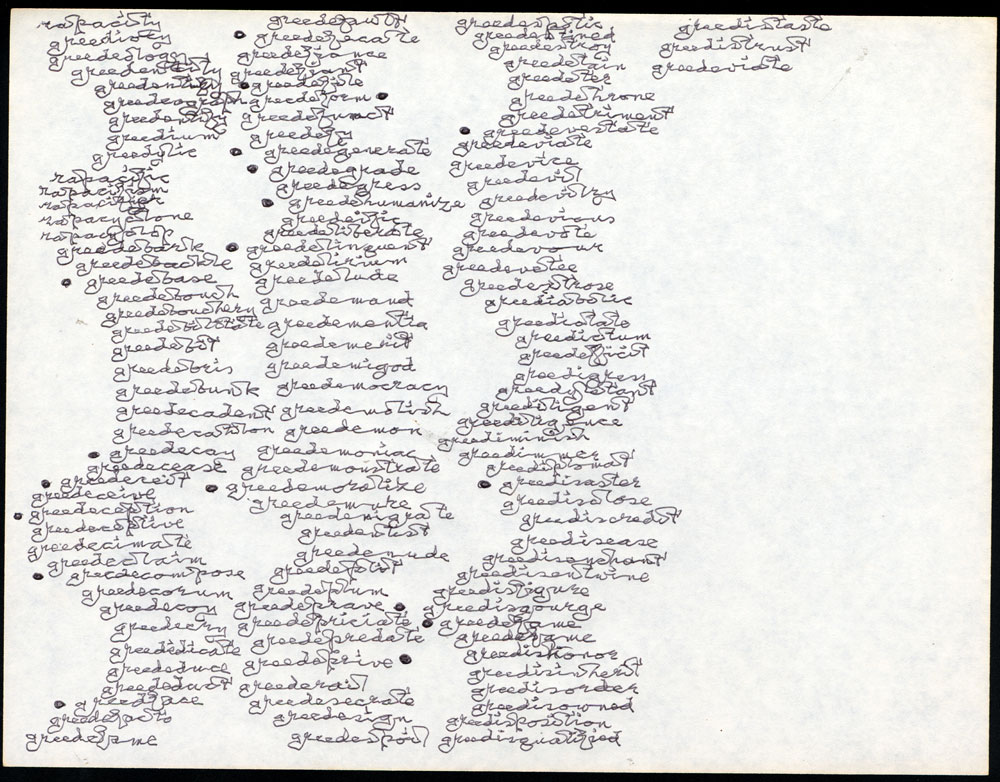 rapacity
greediocy
greedeology
greedentity
greedentify
greedeograph
greedentify
greedium
greedylic
rapacific
rapacifism
rapacifier
rapacyclone
rapacyclop
greedebark
greedebacle
greedebase
greedebauch
greedebauchery
greedebilitate
greedebit
greedebris
greedebunk
greedecadent
greedecathlon
greedecay
greedecease
greedeceit
greedeceive
greedeception
greedeceptive
greedecimate
greedeclaim
greedecompose
greedecorum
greedecoy
greedecry
greededicate
greededuce
greededuct
greedeface
greedefacto
greedefame
greedefault
greedefecate
greedefiance
greedefiant
greedefile
greedeform
greedefunct
greedefy
greedegenerate
greedegrade
greedegress
greedehumanize
greedeific
greedeliberate
greedelinquent
greedelirium
greedelude
greedemand
greedementia
greedemerit
greedemigod
greedemocracy
greedemolish
greedemon
greedemoniac
greedemonstrate
greedemoralize
greedemure
greedenigrate
greedentist
greedenude
greedepict
greedeplum
greedeprave
greedepriciate
greedepredate
greedeprive
greederail
greedesecrate
greedesign
greedespoil
greedespotic
greedestined
greedestroy
greedetain
greedeter
greedethrone
greedetriment
greedevestate
greedeviate
greedevice
greedevil
greedevilry
greedevious
greedevote
greedevour
greedevotee
greedextrose
greediabolic
greedictate
greedictum
greedeficit
greedigress
greedigent
greediligence
greediminish
greedimmer
greediplomat
greedisaster
greedisclose
greediscredit
greedisease
greedisenchant
greedisentwine
greedisfigure
greedisgourge
greedefame
greedefame
greedishonor
greedisinherit
greedisorder
greedisowned
greedisposition
greedisqualified
greedistaste
greedistrust
greedeviate